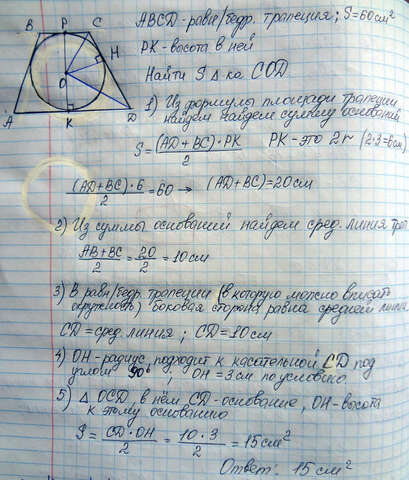 B P C
H
O
A K D
ABCD - равн/бедр. трапеция; S=60см²
PK - высота в ней
Найти S Δ ка COD
1) Из формулы площади трапеции
найдем найдем сумму оснований
S = (AD + BC) · PK / 2 PK - это 2r (2·3=6см)
(AD + BC) · 6 / 2 = 60 → (AD+BC)=20см
2) Из суммы оснований найдем сред. линия трап
AB+BC / 2 = 20 / 2 = 10 см
3) В равн/бедр. трапеции (в которую можно вписать
окружность) боковая сторона равна средней линии
CD = сред. линия ; CD = 10 см
4) OH - радиус подходит к касательной CD под
углом 90° ; OH = 3 см по условию.
5) Δ OCD, в нём CD - основание, OH - высота
к этому основанию
S = CD · OH / 2 = 10 · 3 / 2 = 15 см²
Ответ: 15 см²